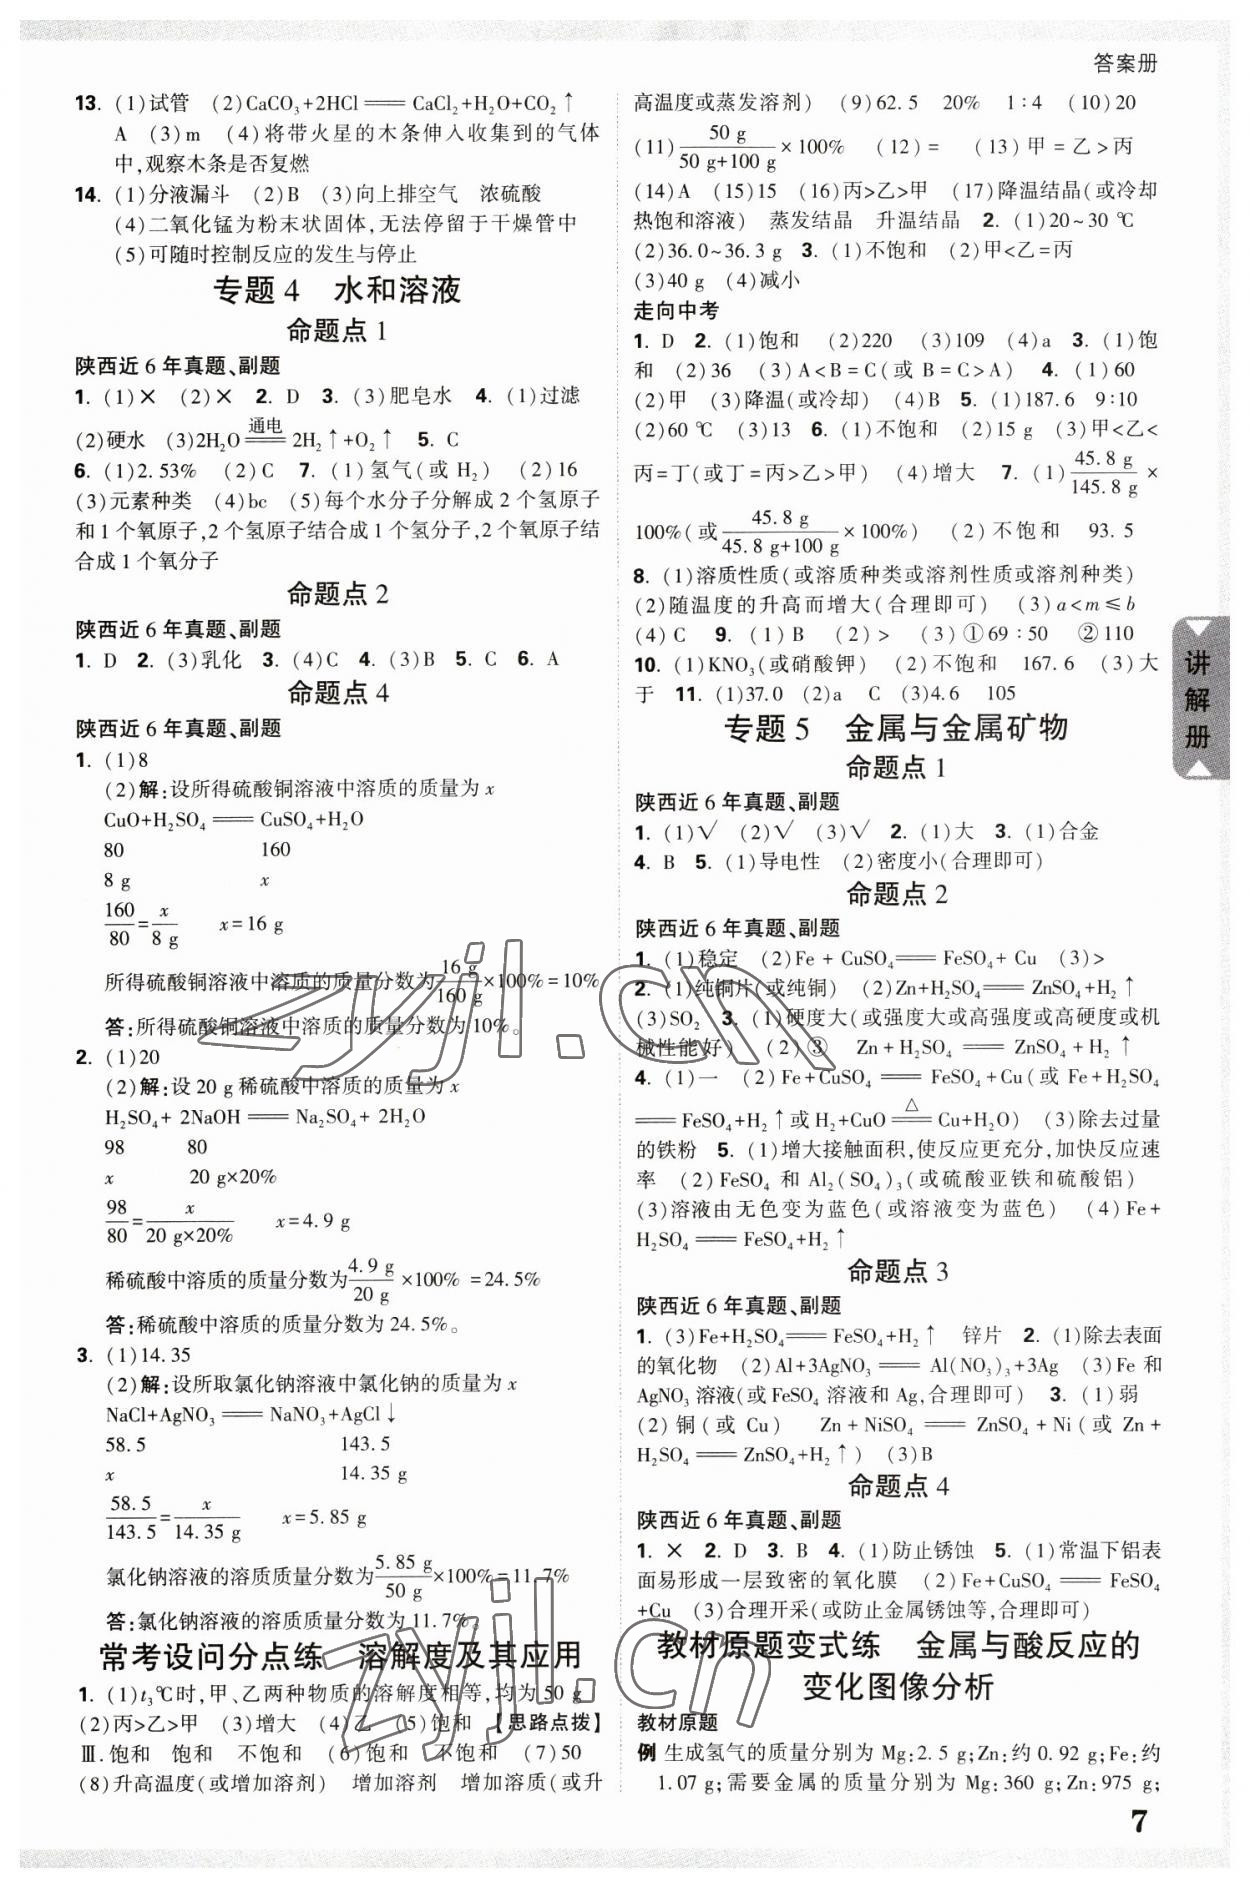 答案册
13. (1)试管　(2)CaCO₃+2HCl══CaCl₂+H₂O+CO₂↑
A　(3)m　(4)将带火星的木条伸入收集到的气体
中,观察木条是否复燃
14. (1)分液漏斗　(2)B　(3)向上排空气　浓硫酸
(4)二氧化锰为粉末状固体,无法停留于干燥管中
(5)可随时控制反应的发生与停止
专题 4　水和溶液
命题点 1
陕西近 6 年真题、副题
1. (1)×　(2)×　2. D　3. (3)肥皂水　4. (1)过滤
(2)硬水　(3)2H₂O═通电═2H₂↑+O₂↑　5. C
6. (1)2.53%　(2)C　7. (1)氢气(或 H₂)　(2)16
(3)元素种类　(4)bc　(5)每个水分子分解成 2 个氢原子
和 1 个氧原子,2 个氢原子结合成 1 个氢分子,2 个氧原子结
合成 1 个氧分子
命题点 2
陕西近 6 年真题、副题
1. D　2. (3)乳化　3. (4)C　4. (3)B　5. C　6. A
命题点 4
陕西近 6 年真题、副题
1. (1)8
(2)解:设所得硫酸铜溶液中溶质的质量为 x
CuO+H₂SO₄══CuSO₄+H₂O
80　160
8 g　x
160/80=x/8 g　x=16 g
所得硫酸铜溶液中溶质的质量分数为16 g/160 g×100%=10%
答:所得硫酸铜溶液中溶质的质量分数为 10%。
2. (1)20
(2)解:设 20 g 稀硫酸中溶质的质量为 x
H₂SO₄+ 2NaOH══Na₂SO₄+ 2H₂O
98　80
x　20 g×20%
98/80=x/20 g×20%　x=4.9 g
稀硫酸中溶质的质量分数为4.9 g/20 g×100% =24.5%
答:稀硫酸中溶质的质量分数为 24.5%。
3. (1)14.35
(2)解:设所取氯化钠溶液中氯化钠的质量为 x
NaCl+AgNO₃══NaNO₃+AgCl↓
58.5　143.5
x　14.35 g
58.5/143.5=x/14.35 g　x=5.85 g
氯化钠溶液的溶质质量分数为5.85 g/50 g×100%=11.7%
答:氯化钠溶液的溶质质量分数为 11.7%。
常考设问分点练　溶解度及其应用
1. (1)t₃℃时,甲、乙两种物质的溶解度相等,均为 50 g
(2)丙>乙>甲　(3)增大　(4)乙　(5)饱和　【思路点拨】
Ⅲ.饱和　饱和　不饱和　(6)饱和　不饱和　(7)50
(8)升高温度(或增加溶剂)　增加溶剂　增加溶质(或升
高温度或蒸发溶剂)　(9)62.5　20%　1∶4　(10)20
(11)50 g/50 g+100 g×100%　(12)=　(13)甲=乙>丙
(14)A　(15)15　(16)丙>乙>甲　(17)降温结晶(或冷却
热饱和溶液)　蒸发结晶　升温结晶　2. (1)20~30 ℃
(2)36.0~36.3 g　3. (1)不饱和　(2)甲<乙=丙
(3)40 g　(4)减小
走向中考
1. D　2. (1)饱和　(2)220　(3)109　(4)a　3. (1)饱
和　(2)36　(3)A<B=C(或 B=C>A)　4. (1)60
(2)甲　(3)降温(或冷却)　(4)B　5. (1)187.6　9∶10
(2)60 ℃　(3)13　6. (1)不饱和　(2)15 g　(3)甲<乙<
丙=丁(或丁=丙>乙>甲)　(4)增大　7. (1)45.8 g/145.8 g×
100%(或45.8 g/45.8 g+100 g×100%)　(2)不饱和　93.5
8. (1)溶质性质(或溶质种类或溶剂性质或溶剂种类)
(2)随温度的升高而增大(合理即可)　(3)a<m≤b
(4)C　9. (1)B　(2)>　(3)①69∶50　②110
10. (1)KNO₃(或硝酸钾)　(2)不饱和　167.6　(3)大
于　11. (1)37.0　(2)a　C　(3)4.6　105
专题 5　金属与金属矿物
命题点 1
陕西近 6 年真题、副题
1. (1)√　(2)√　(3)√　2. (1)大　3. (1)合金
4. B　5. (1)导电性　(2)密度小(合理即可)
命题点 2
陕西近 6 年真题、副题
1. (1)稳定　(2)Fe + CuSO₄══FeSO₄+ Cu　(3)>
2. (1)纯铜片(或纯铜)　(2)Zn+H₂SO₄══ZnSO₄+H₂↑
(3)SO₂　3. (1)硬度大(或强度大或高强度或高硬度或机
械性能好)　(2)③　Zn + H₂SO₄══ZnSO₄ + H₂↑
4. (1)一　(2)Fe+CuSO₄══FeSO₄+Cu(或 Fe+H₂SO₄
══FeSO₄+H₂↑或 H₂+CuO═△═Cu+H₂O)　(3)除去过量
的铁粉　5. (1)增大接触面积,使反应更充分,加快反应速
率　(2)FeSO₄ 和 Al₂(SO₄)₃(或硫酸亚铁和硫酸铝)
(3)溶液由无色变为蓝色(或溶液变为蓝色)　(4)Fe+
H₂SO₄══FeSO₄+H₂↑
命题点 3
陕西近 6 年真题、副题
1. (3)Fe+H₂SO₄══FeSO₄+H₂↑　锌片　2. (1)除去表面
的氧化物　(2)Al+3AgNO₃══Al(NO₃)₃+3Ag　(3)Fe 和
AgNO₃ 溶液(或 FeSO₄ 溶液和 Ag,合理即可)　3. (1)弱
(2)铜(或 Cu)　Zn + NiSO₄══ZnSO₄ + Ni(或 Zn +
H₂SO₄══ZnSO₄+H₂↑)　(3)B
命题点 4
陕西近 6 年真题、副题
1. ×　2. D　3. B　4. (1)防止锈蚀　5. (1)常温下铝表
面易形成一层致密的氧化膜　(2)Fe+CuSO₄══FeSO₄
+Cu　(3)合理开采(或防止金属锈蚀等,合理即可)
教材原题变式练　金属与酸反应的
变化图像分析
教材原题
例 生成氢气的质量分别为 Mg:2.5 g;Zn:约 0.92 g;Fe:约
1.07 g;需要金属的质量分别为 Mg:360 g;Zn:975 g;
讲解册
7
zyjl.cn
zyjl.cn